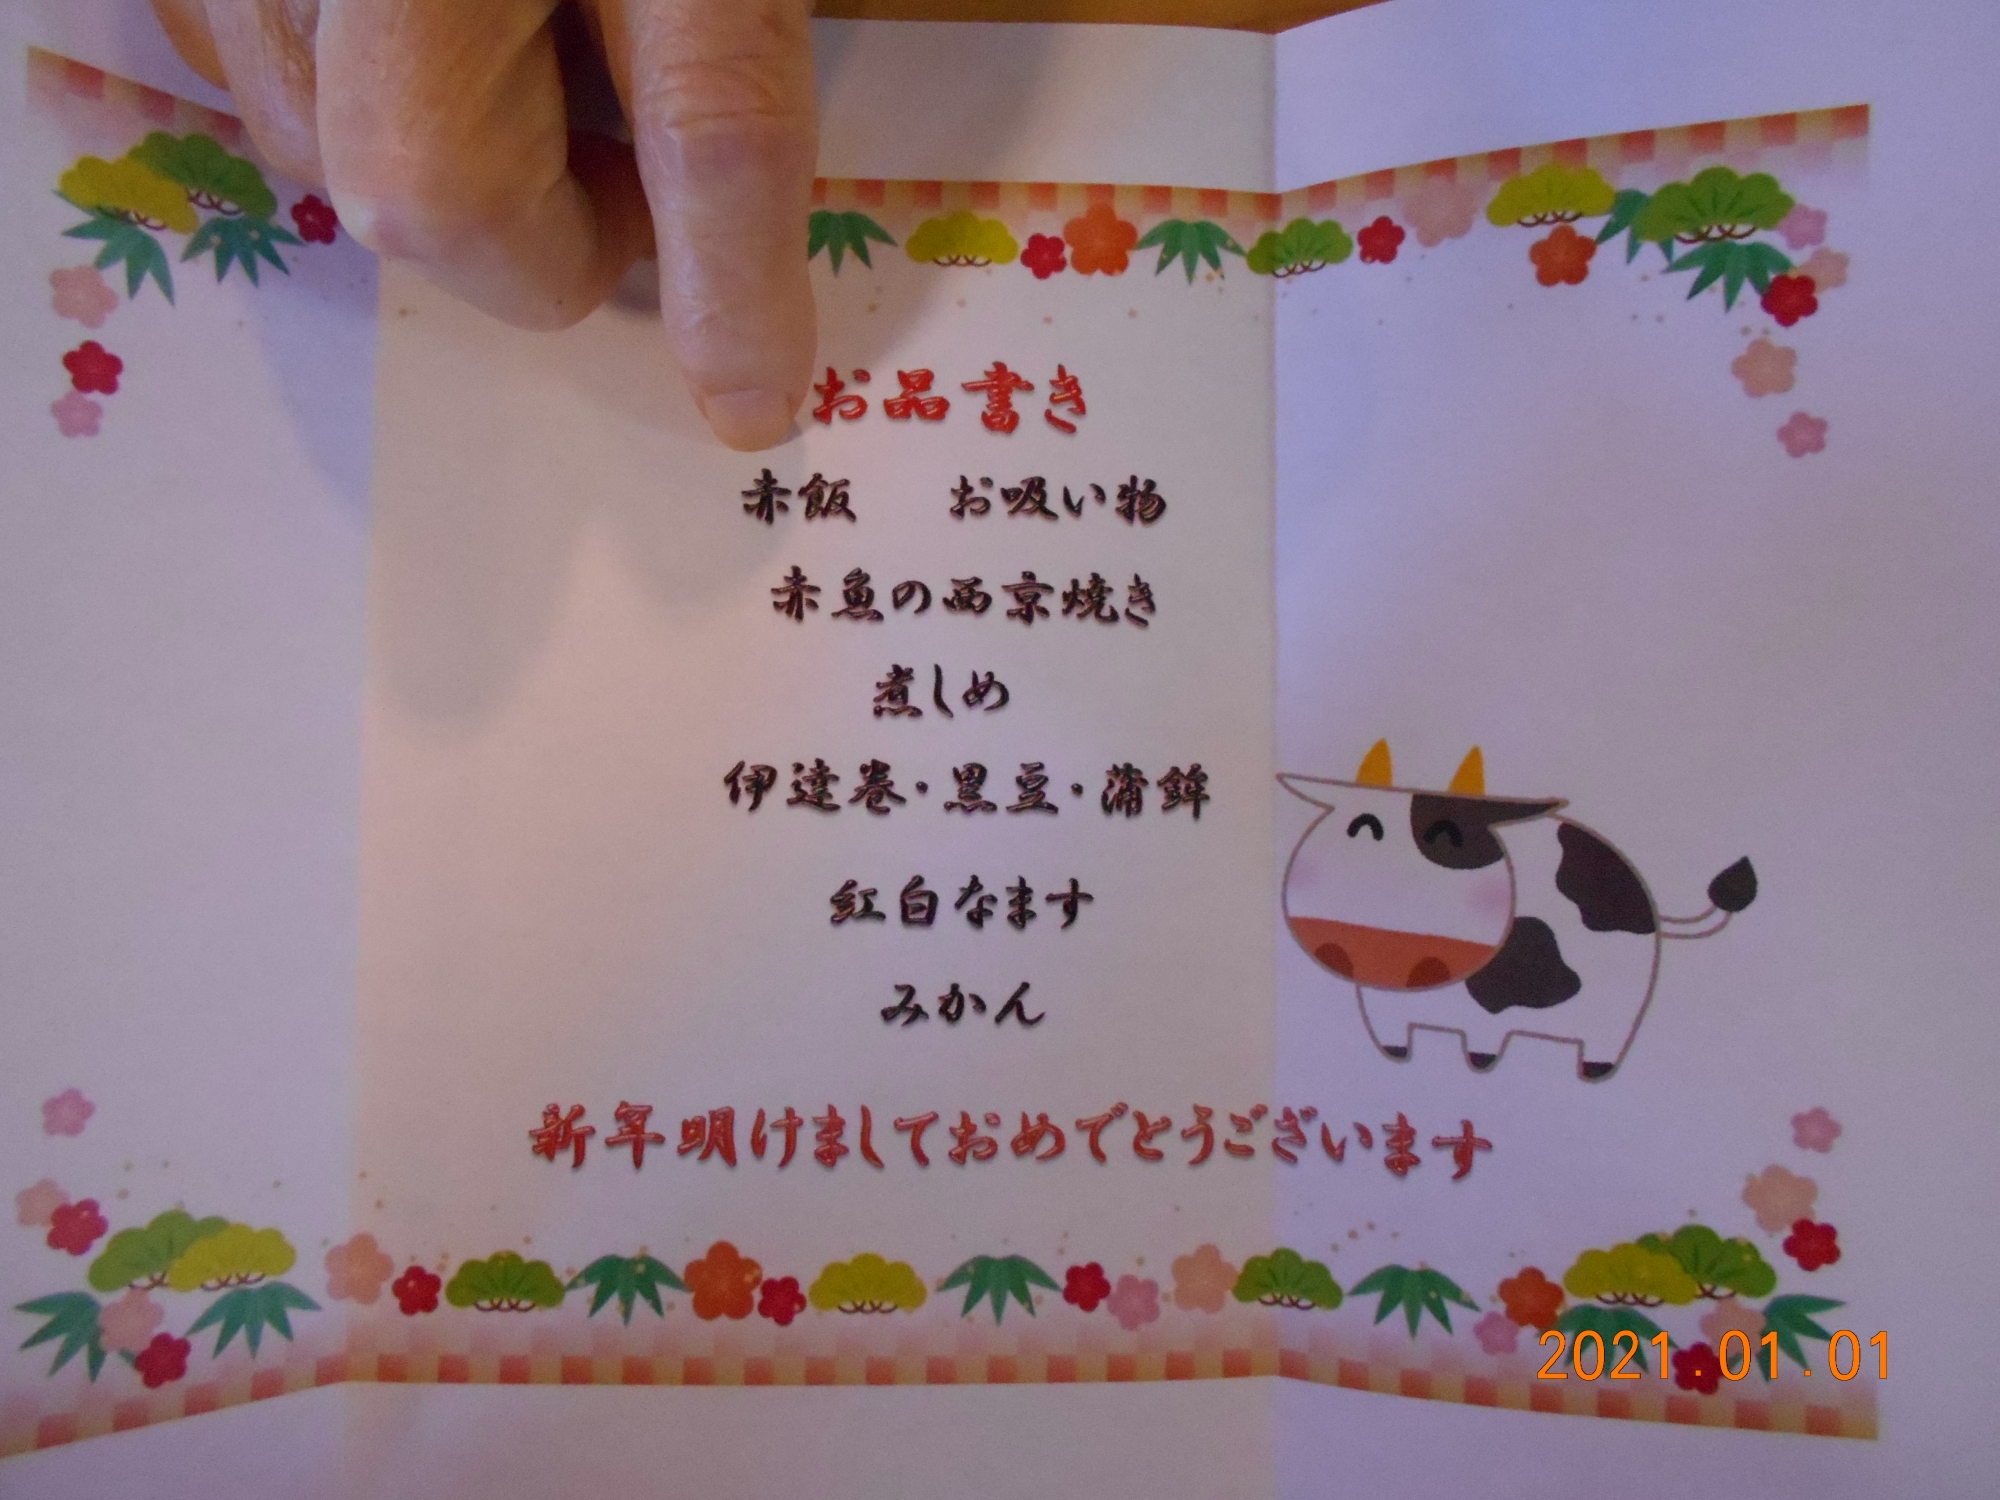 お品書き
赤飯　お吸い物
赤魚の西京焼き
煮しめ
伊達巻・黒豆・蒲鉾
紅白なます
みかん
新年明けましておめでとうございます
2021.01.01